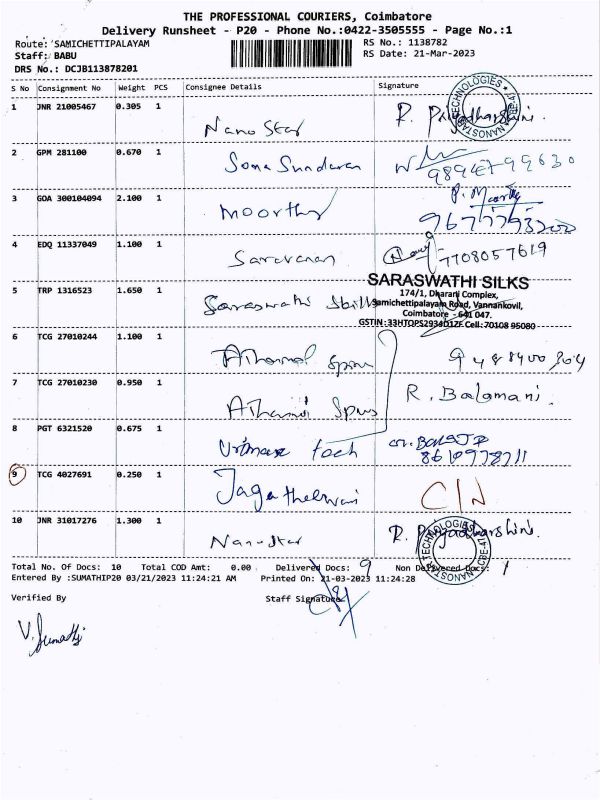 THE PROFESSIONAL COURIERS, Coimbatore
Delivery Runsheet - P20 - Phone No.:0422-3505555 - Page No.:1
Route: SAMICHETTIPALAYAM
RS No.: 1138782
Staff: BABU
RS Date: 21-Mar-2023
DRS No.: DCJB113878201
S No Consignment No Weight PCS Consignee Details Signature
1 JNR 21005467 0.305 1 Nano Star R. Priyadharshini.
NANOSTAR TECHNOLOGIES CBE-47
2 GPM 281100 0.670 1 Soma Sundaran
3 GOA 300104094 2.100 1 Moorthy P. Moorthy
4 EDQ 11337049 1.100 1 Saravanan 7708057619
SARASWATHI SILKS
174/1, Dharani Complex,
5 TRP 1316523 1.650 1 Saraswathi Samichettipalayam Road, Vannankovil,
Coimbatore - 641 047.
GSTIN :33HTOPS2934D1ZF Cell:70108 95080
6 TCG 27010244 1.100 1
7 TCG 27010230 0.950 1 R. Balamani.
8 PGT 6321520 0.675 1 tech
9 TCG 4027691 0.250 1 C/N
10 JNR 31017276 1.300 1 Nanostar R. Priyadharshini.
NANOSTAR TECHNOLOGIES CBE-47
Total No. Of Docs: 10 Total COD Amt: 0.00 Delivered Docs: 9 Non Delivered Docs: 1
Entered By :SUMATHIP20 03/21/2023 11:24:21 AM Printed On: 21-03-2023 11:24:28
Verified By Staff Signature
V. Sumathi